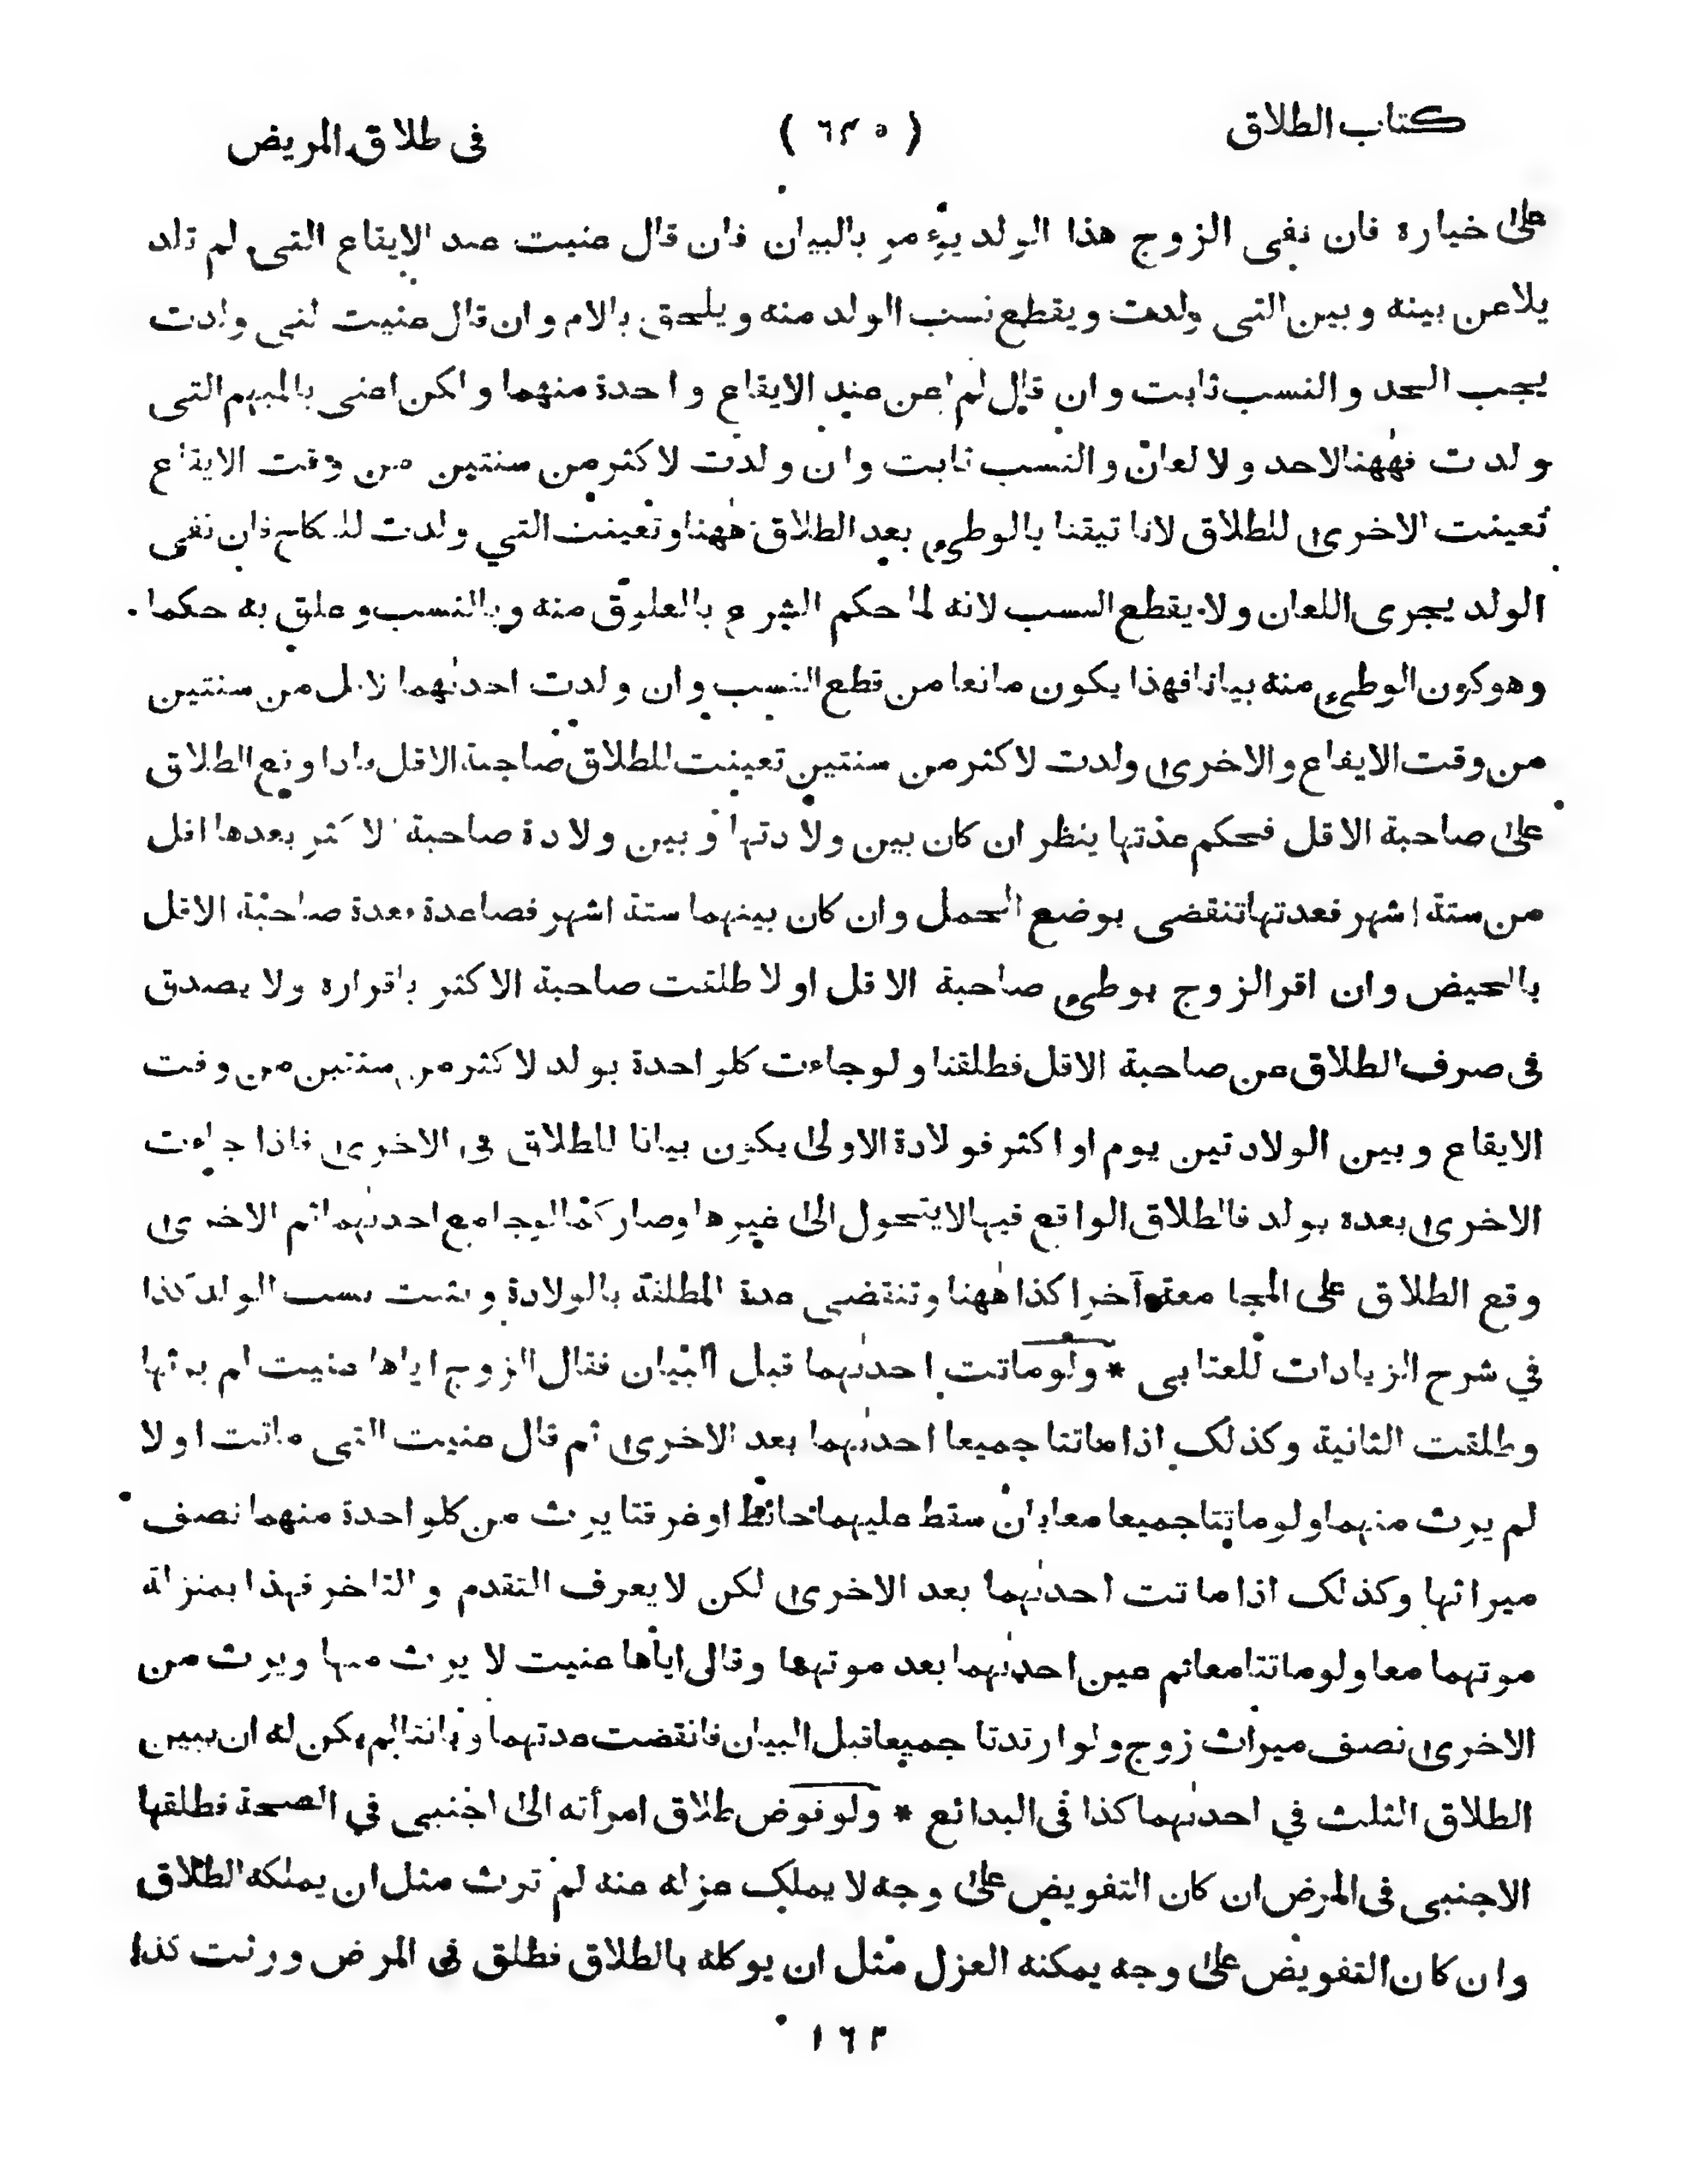 كتاب الطلاق (٦٣٥) فى طلاق المريض
على خياره فان نفى الزوج هذا الولد يؤمر بالبيان فان قال عنيت عند الايقاع التى لم تلد
يلاعن بينه وبين التى ولدت ويقطع نسب الولد منه ويلحق بالام وان قال عنيت التى ولدت
يجب الحد والنسب ثابت وان قال لم اعن عند الايقاع واحدة منهما ولكن اعنى بالمبهم التى
ولدت فههنا لاحد ولا لعان والنسب ثابت وان ولدت لاكثر من سنتين من وقت الايقاع
تعينت الاخرى للطلاق لانا تيقنا بالوطىء بعد الطلاق ههنا وتعينت التي ولدت للنكاح فان نفى
الولد يجرى اللعان ولا يقطع النسب لانه لما حكم الشرع بالعلوق منه وبالنسب وعلق به حكما
وهو كون الوطىء منه بيانا فهذا يكون مانعا من قطع النسب وان ولدت احدٰنهما لاقل من سنتين
من وقت الايقاع والاخرى ولدت لاكثر من سنتين تعينت للطلاق صاحبة الاقل فاذا وقع الطلاق
على صاحبة الاقل فحكم عدتها ينظر ان كان بين ولادتها وبين ولادة صاحبة الاكثر بعدها اقل
من ستة اشهر فعدتها تنقضى بوضع الحمل وان كان بينهما ستة اشهر فصاعدة فعدة صاحبة الاقل
بالحيض وان اقر الزوج بوطىء صاحبة الاقل اولا طلقت صاحبة الاكثر باقراره ولا يصدق
فى صرف الطلاق عن صاحبة الاقل فطلقنا ولو جاءت كلواحدة بولد لاكثر من سنتين من وقت
الايقاع وبين الولادتين يوم او اكثر فولادة الاولى يكون بيانا للطلاق فى الاخرى فاذا جاءت
الاخرى بعده بولد فالطلاق الواقع فيها لا يتحول الى غيرها وصار كما لو جامع احدٰىهما ثم الاخرى
وقع الطلاق على المجا معة آخرا كذا هٰهنا وتنقضى عدة المطلقة بالولادة ويثبت نسب الولد كذا
في شرح الزيادات للعتابى * ولو ماتت احدٰىهما قبل البيان فقال الزوج اياها عنيت لم يرثها
وطلقت الثانية وكذلك اذا ماتتا جميعا احدٰىهما بعد الاخرى ثم قال عنيت التى ماتت اولا
لم يرث منهما ولو ماتتا جميعا معا بان سقط عليهما حائط او غرقتا يرث من كلواحدة منهما نصف
ميراثها وكذلك اذا ماتت احدٰىهما بعد الاخرى لكن لا يعرف التقدم والتاخر فهذا بمنزلة
موتهما معا ولو ماتتا معا ثم عين احدٰىهما بعد موتهما وقال اياها عنيت لا يرث منها ويرث من
الاخرى نصف ميراث زوج ولو ارتدتا جميعا قبل البيان فانقضت عدتهما وبانتا لم يكن له ان يبين
الطلاق الثلث في احدٰىهما كذا فى البدائع * ولو فوض طلاق امرأته الى اجنبى في الصحة فطلقها
الاجنبى فى المرض ان كان التفويض على وجه لا يملك عزله عنه لم ترث مثل ان يملكه الطلاق
وان كان التفويض على وجه يمكنه العزل مثل ان يوكله بالطلاق فطلق فى المرض ورثت كذا
١٦٣